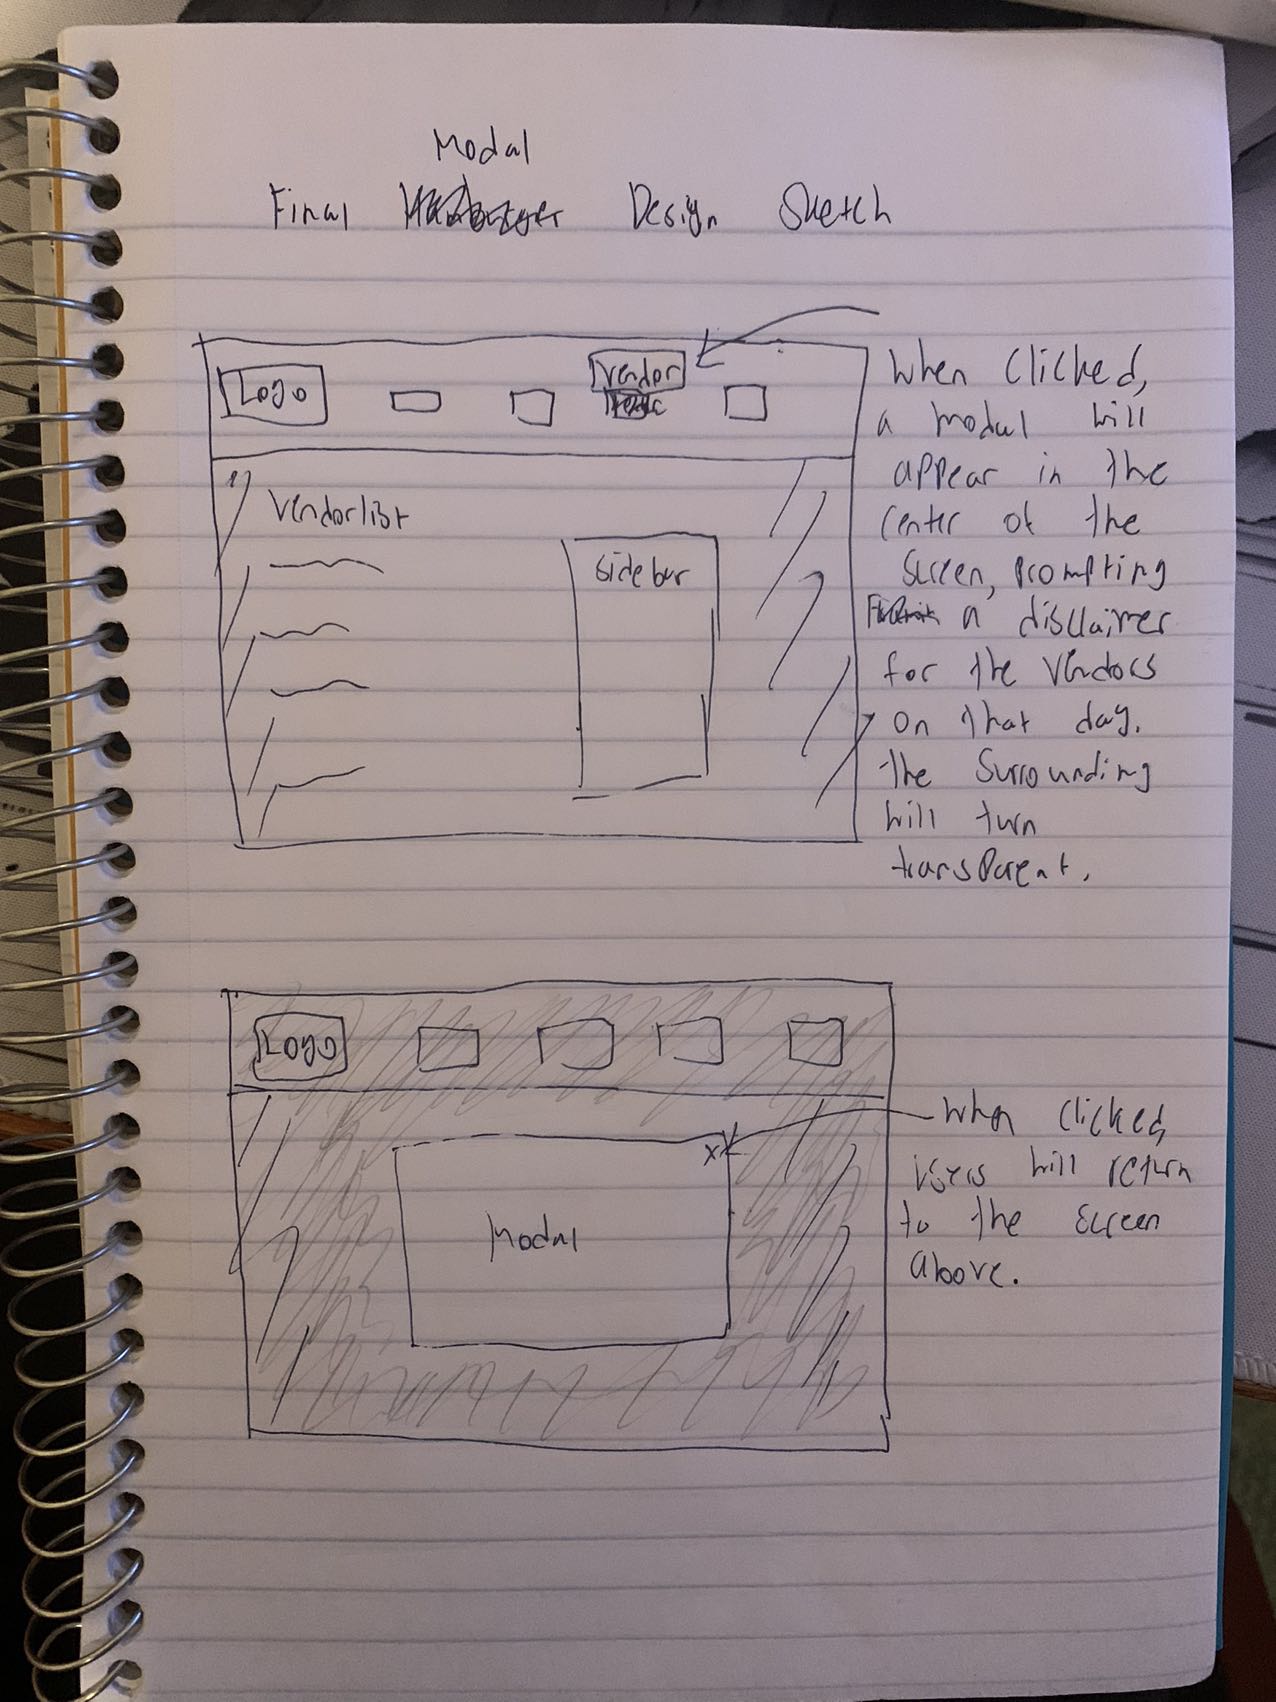 Modal
Final Hamburger Design Sketch
Logo
Vendor
Vendorlist
sidebar
When Clicked,
a modal will
appear in the
center of the
screen, prompting
a disclaimer
for the Vendors
on that day.
the surrounding
will turn
transparent.
Logo
X
Modal
When Clicked,
users will return
to the screen
above.